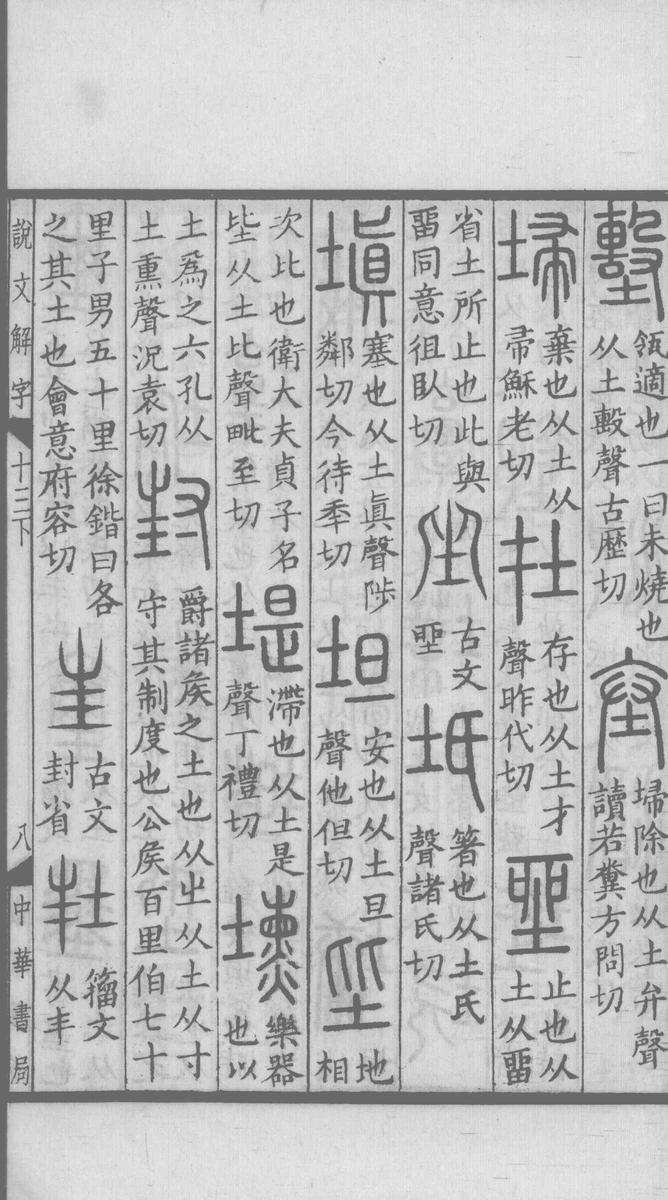 墼瓴適也一曰未燒也从土毄聲古歷切𡊄埽除也从土弁聲讀若糞方問切
埽棄也从土从帚穌老切在存也从土才聲昨代切𡋲止也从土从畱
省土所止也此與畱同意徂臥切坐古文𡋲坁箸也从土氏聲諸氏切
塡塞也从土眞聲陟鄰切今待秊切坦安也从土旦聲他但切坒地相
次比也衛大夫貞子名坒从土比聲毗至切堤滯也从土是聲丁禮切壎樂器也以
土爲之六孔从土熏聲況袁切封爵諸矦之土也从㞢从土从寸守其制度也公矦百里伯七十
里子男五十里徐鍇曰各之其土也會意府容切𡉚古文封省𡉘籒文从丰
說文解字 十三下 八 中華書局